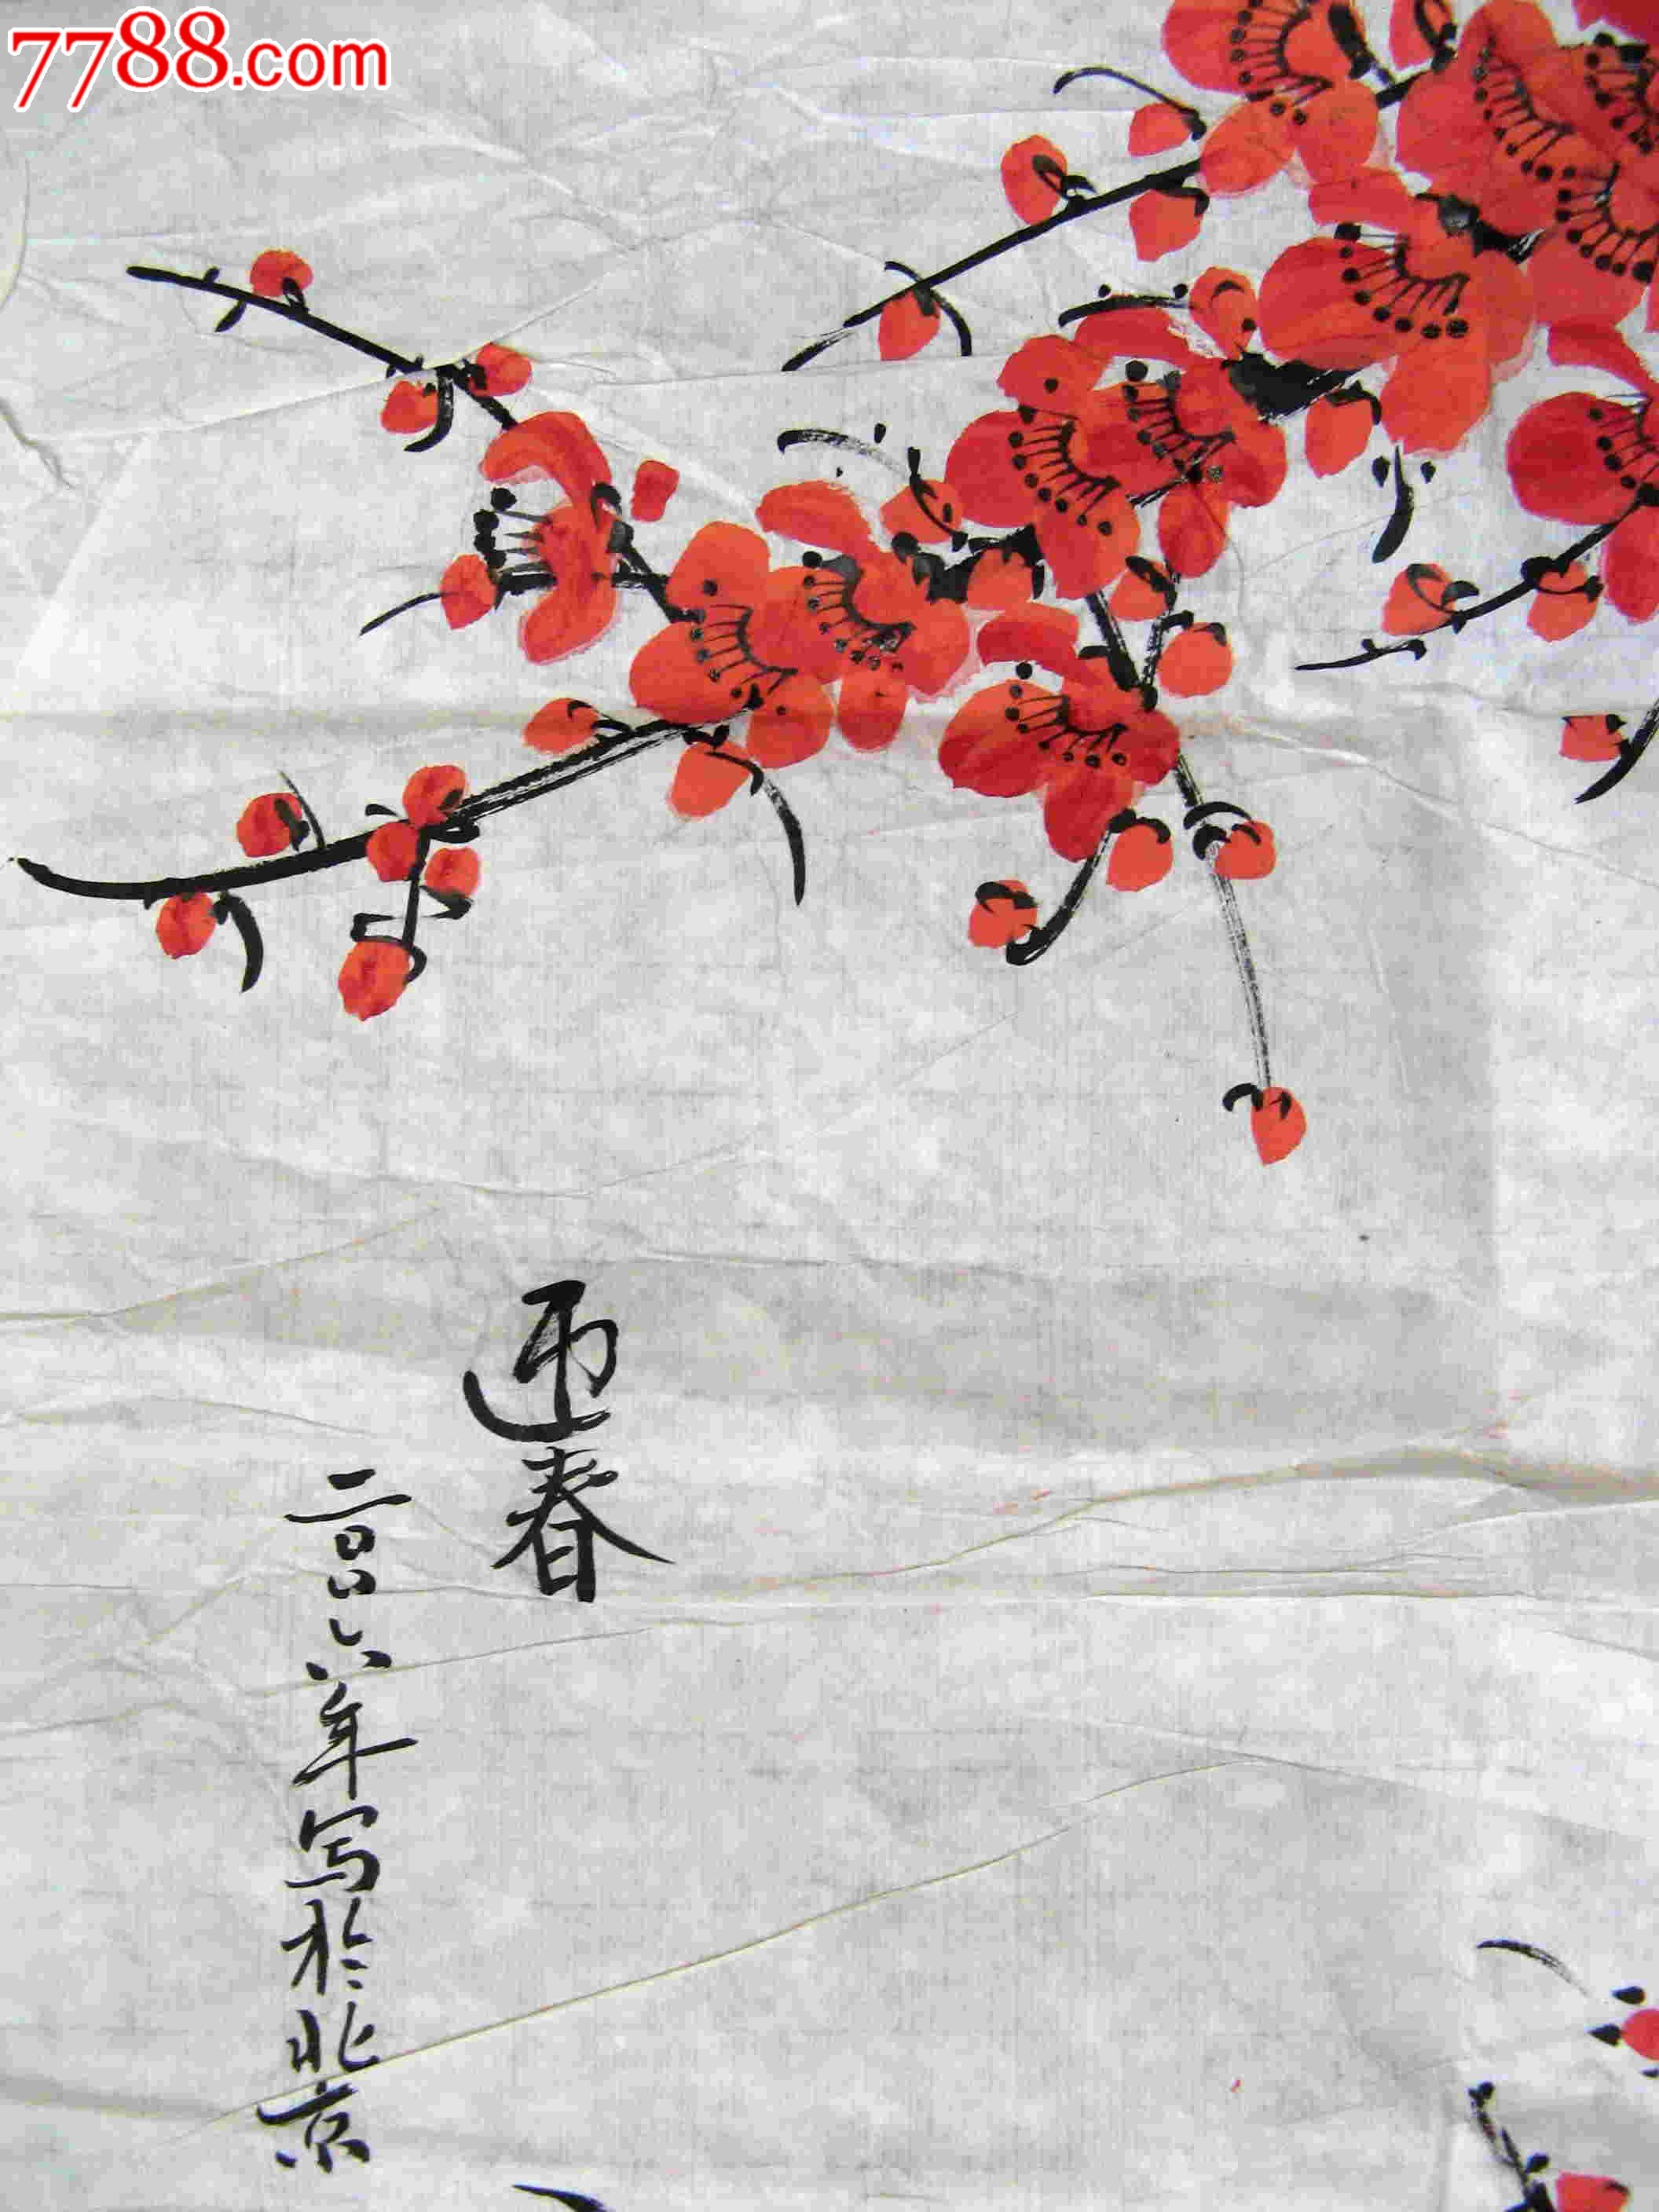 7788.com
迎春
二〇〇六年写於北京